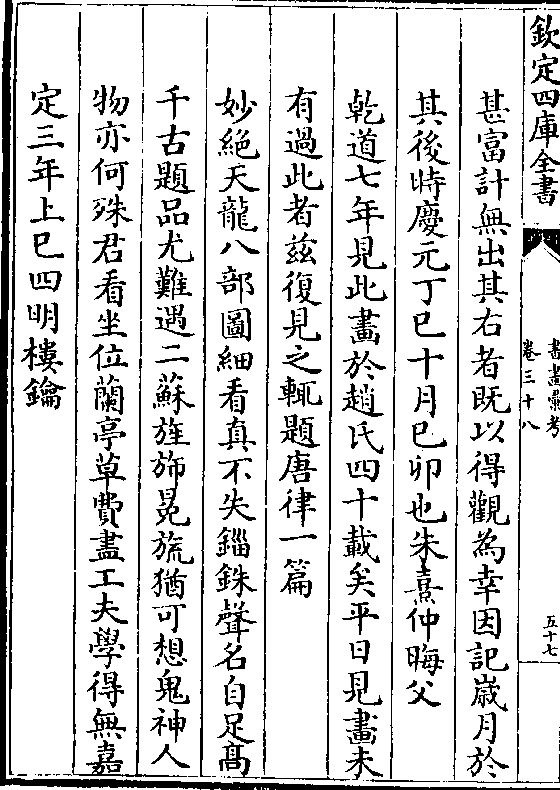 欽定四庫全書
書畫彙考
卷三十八
五十七
甚富計無出其右者既以得觀為幸因記嵗月於
其後時慶元丁巳十月己卯也朱熹仲晦父
乾道七年見此畫於趙氏四十載矣平日見畫未
有過此者兹復見之輒題唐律一篇
妙絶天龍八部圖細看真不失錙銖聲名自足髙
千古題品尤難遇二蘇旌斾冕旒猶可想鬼神人
物亦何殊君看坐位蘭亭草費盡工夫學得無嘉
定三年上巳四明樓鑰